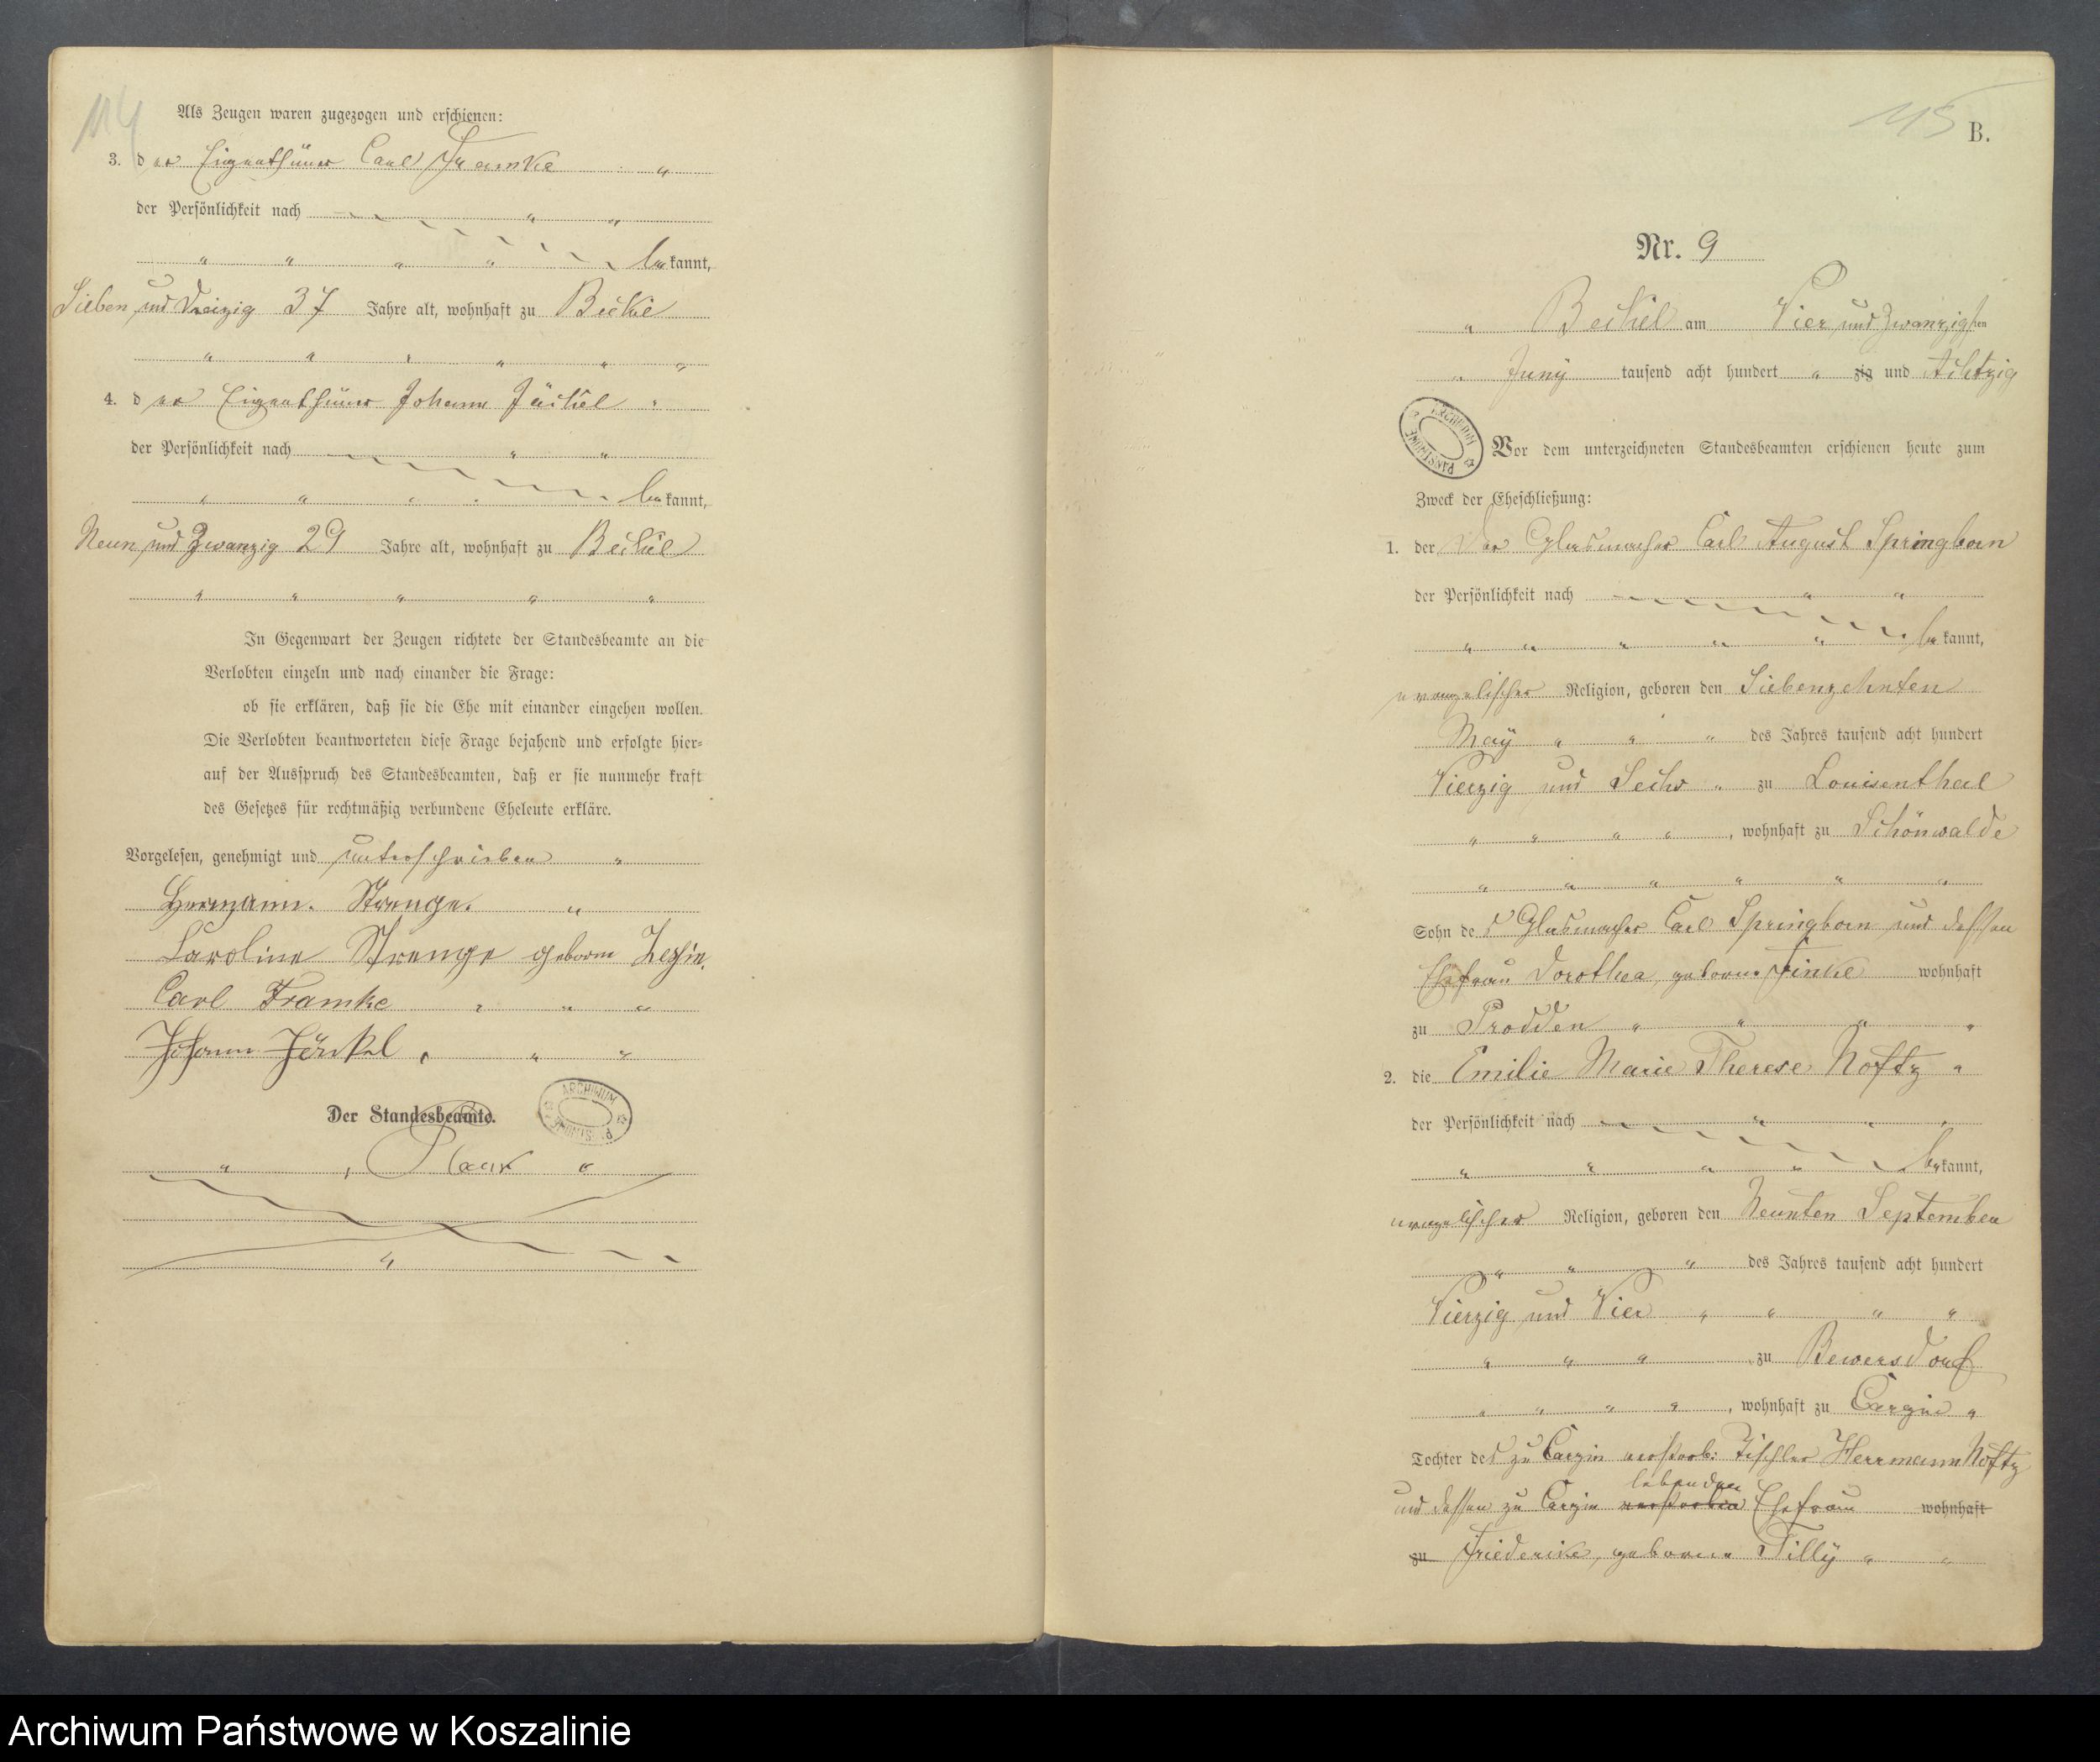 114
Als Zeugen waren zugezogen und erschienen:
3. der Eigenthümer Carl Framke "
der Persönlichkeit nach " "
" " " " bekannt,
Sieben und Dreizig 37 Jahre alt, wohnhaft zu Beckel
" " " " " "
4. der Eigenthümer Johann Jäckel "
der Persönlichkeit nach " "
" " " " bekannt,
Neun und Zwanzig 29 Jahre alt, wohnhaft zu Beckel
" " " " "
In Gegenwart der Zeugen richtete der Standesbeamte an die
Verlobten einzeln und nach einander die Frage:
ob sie erklären, daß sie die Ehe mit einander eingehen wollen.
Die Verlobten beantworteten diese Frage bejahend und erfolgte hier-
auf der Ausspruch des Standesbeamten, daß er sie nunmehr kraft
des Gesetzes für rechtmäßig verbundene Eheleute erkläre.
Vorgelesen, genehmigt und unterschrieben "
Hermann. Strenge. "
Caroline Strenge geborn
Carl Framke " " "
Johann Jänkel " " "
Der Standesbeamte.
ARCHIWUM PAŃSTWOWE
" "
"
115
B.
Nr. 9
" Beckel am Vier und Zwanzigsten
" Juny tausend acht hundert " zig und Achtzig
ARCHIWUM PAŃSTWOWE
Vor dem unterzeichneten Standesbeamten erschienen heute zum
Zweck der Eheschließung:
1. der Der Glasmacher Carl August Springborn
der Persönlichkeit nach " "
" " " " " bekannt,
evangelischer Religion, geboren den Siebenzehnten
May " " " des Jahres tausend acht hundert
Vierzig und Sechs " zu Louisenthal
" " " " , wohnhaft zu Schönwalde
" " " " " "
Sohn des Glasmacher Carl Springborn und dessen
Ehefrau Dorothea, geborne Finke wohnhaft
zu Prodden " " " "
2. die Emilie Marie Therese Noftz "
der Persönlichkeit nach " " "
" " " " bekannt,
evangelischer Religion, geboren den Neunten September
" " " des Jahres tausend acht hundert
Vierzig und Vier " " " "
" " " zu Bewersdorf
" " " " , wohnhaft zu Carzin "
Tochter des zu Carzin verstorb: Tischler Herrmann Noftz
lebenden
und dessen zu Carzin verstorben Ehefrau wohnhaft
zu Friederike, geborne Tilly " "
Archiwum Państwowe w Koszalinie